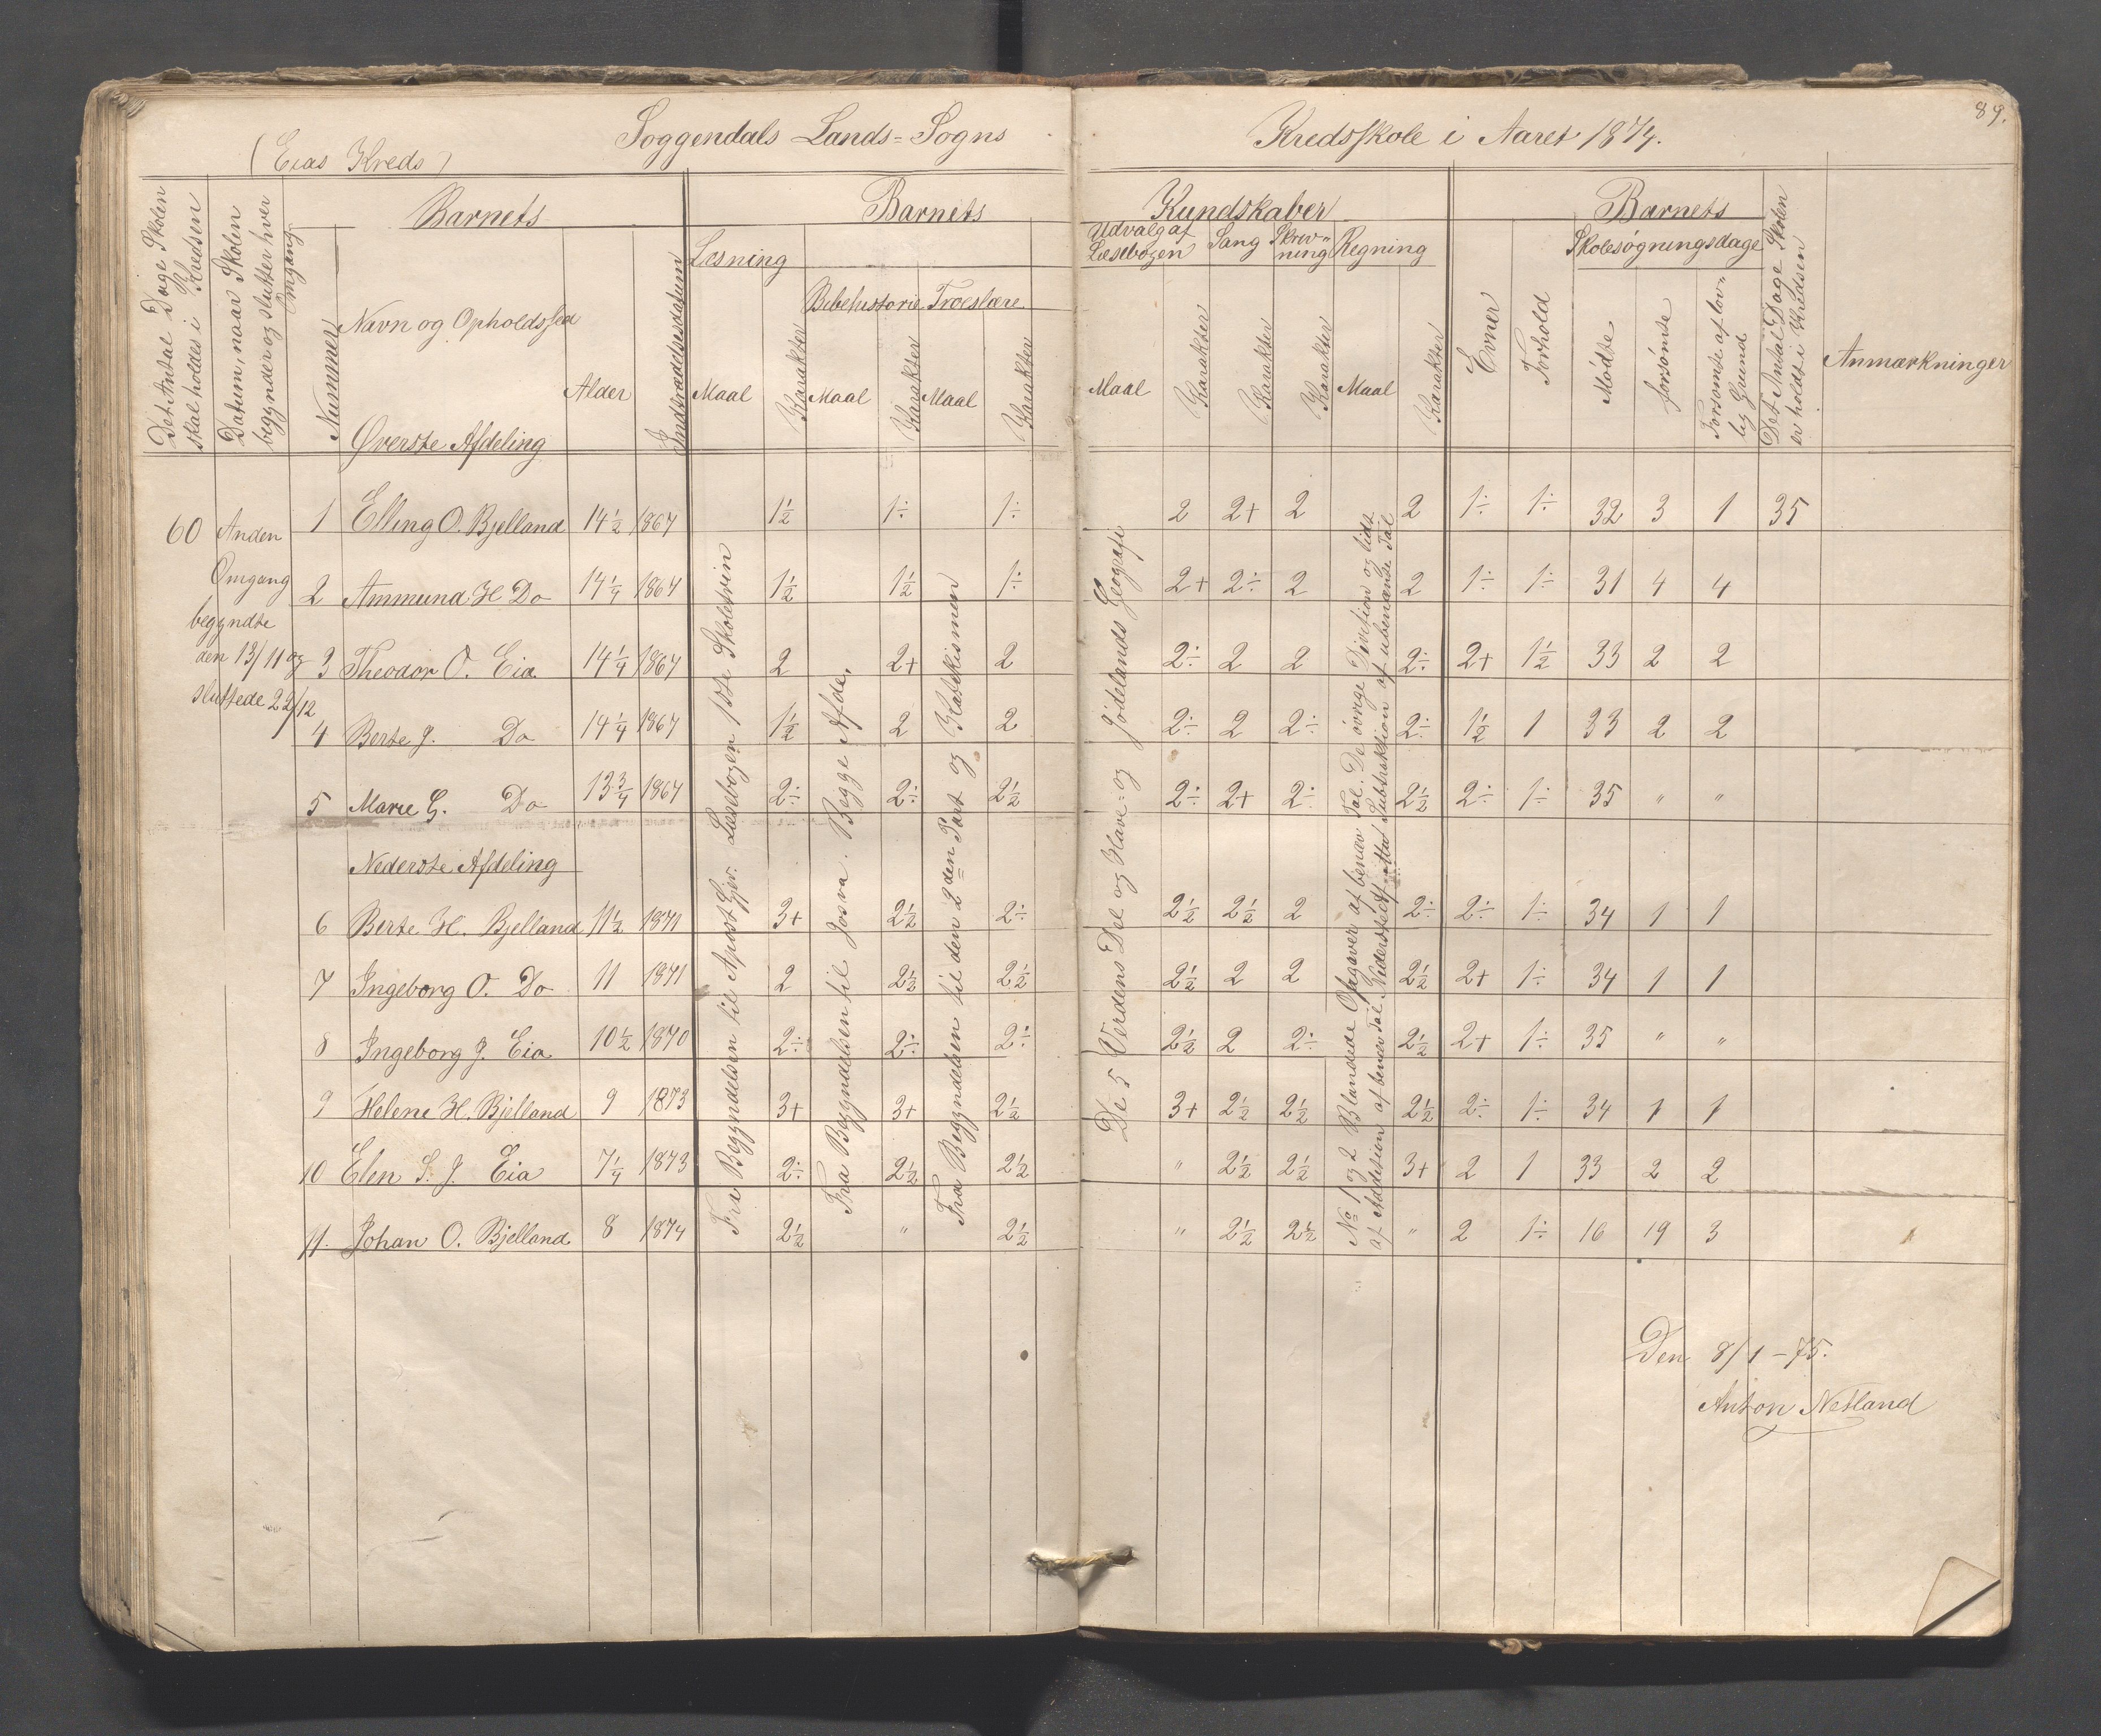 89.
Soggendals Lands=Sogns Kredsskole i Aaret 1874.
(Eias Kreds)
Det Antal Dage Skolen skal holdes i Kredsen
Datum, naar Skolen begynder og slutter hver Omgang
Barnets
Nummer
Navn og Opholdssted
Alder
Indtrædelsesdatum
Barnets Kundskaber
Læsning
Maal
Karakter
Bibelhistorie
Maal
Karakter
Troeslære
Maal
Karakter
Udvalg af Læsebogen
Maal
Karakter
Sang
Karakter
Skrivning
Karakter
Regning
Maal
Karakter
Evner
Forhold
Barnets
Skolesøgningsdage
Mødte
forsømte
Forsømte af lovlig Grund
Det Antal Dage Skolen er holdt i Kredsen
Anmærkninger
Øverste Afdeling
60 Anden
Omgang
begyndte
den 13/11 og
sluttede 22/12
1 Elling O. Bjelland 14½ 1867 1½ 1÷ 1÷ 2 2+ 2 2 1÷ 1÷ 32 3 1 35
2 Ammund H Do 14¼ 1867 1½ 1½ 1÷ 2+ 2÷ 2 2 1÷ 1÷ 31 4 4
3 Theodor O. Eia 14¼ 1867 2 2+ 2 2÷ 2 2 2÷ 2+ 1½ 33 2 2
4 Berte J. Do 14¼ 1867 1½ 2 2 2÷ 2 2÷ 2÷ 1½ 1 33 2 2
5 Marie G. Do 13¾ 1867 2÷ 2÷ 2½ 2÷ 2+ 2÷ 2½ 2÷ 1÷ 35 " "
Nederste Afdeling
6 Berte H. Bjelland 11½ 1871 3+ 2½ 2÷ 2½ 2½ 2 2÷ 2÷ 1÷ 34 1 1
7 Ingeborg O. Do 11 1871 2 2½ 2½ 2½ 2 2 2½ 2+ 1÷ 34 1 1
8 Ingeborg J Eia 10½ 1870 2÷ 2÷ 2÷ 2½ 2 2÷ 2½ 2+ 1÷ 35 " "
9 Helene H. Bjelland 9 1873 3+ 3+ 2½ 3+ 2½ 2½ 2½ 2÷ 1÷ 34 1 1
10 Elen S. J. Eia 7¼ 1873 2÷ 2½ 2½ " 2½ 2½ 3+ 2 1 33 2 2
11. Johan O. Bjelland 8 1874 2½ " 2½ " 2½ 2½ " 2 1÷ 16 19 3
Fra Begyndelsen til Apost Gjer. Læsebogen 1ste Skoletrin
Fra Begyndelsen til Josva. Begge Afde.
Fra Begyndelsen til den 2den Part og Katekismen
De 5 Verdens Del og Have= og Jødelands Geografi
No 1 og 2 Blandede Opgaver af benæv Tal. De øvrige Division og lidt
af Addition af benæv Tal Nederste Afd. Subtraktion af ubenævnte Tal
Den 8/1-75.
Anton Netland